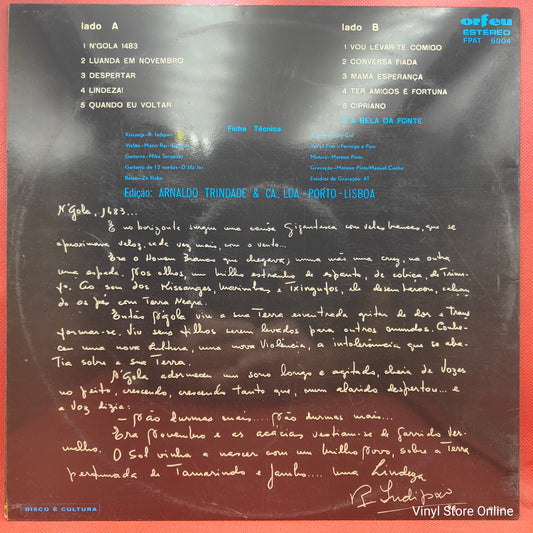 lado A
1 N'GOLA 1483
2 LUANDA EM NOVEMBRO
3 DESPERTAR
4 LINDEZA!
5 QUANDO EU VOLTAR
lado B
1 VOU LEVAR-TE COMIGO
2 CONVERSA FIADA
3 MAMÃ ESPERANÇA
4 TER AMIGOS É FORTUNA
5 CIPRIANO
6 A BELA DA FONTE
orfeu
ESTEREO
FPAT 6004
Ficha Técnica
Kissanje-R. Indipwo
Violas-Mário Rui
Guitarra-Mike Sergeant
Guitarra de 12 cordas-
Baixo-Zé Nabo
Mistura-Moreno Pinto
Gravação-Moreno Pinto/Manuel Cunha
Estúdios de Gravação: AT
Edição: ARNALDO TRINDADE & CA., LDA.-PORTO-LISBOA
N'Gola, 1483...
E no horizonte surgiu uma canôa gigantesca com velas brancas, que se
aproximava veloz, cada vez mais, com o vento...
Era o Homem Branco que chegava; numa mão uma cruz, na outra
uma espada. Nos olhos, um brilho estranho de espanto, de cobiça, de Triun-
fo. Ao som dos Kissanges, Marimbas e Txingufos, ele desembarcou, calcan-
do os pés com Terra Negra.
Então N'gola viu a sua Terra esventrada gritar de dor e Trans
formar-se. Viu seus filhos serem levados para outros mundos. Conhe-
ceu uma nova Cultura, uma nova Violência, a intolerância que se aba-
Tia sobre a sua Terra.
N'Gola adormeceu um sono longo e agitado, cheio de Vozes
no peito, crescendo, crescendo tanto que, num alarido despertou... e
a Voz dizia:
- Não durmas mais.... Não durmas mais...
Era Novembro e as acácias vestiam-se de garrido Ver-
melho. O Sol vinha a nascer com um brilho Novo, sobre a Terra
perfumada de Tamarindo e Jambo.... Uma Lindeza
R. Indipwo
DISCO É CULTURA
Vinyl Store Online